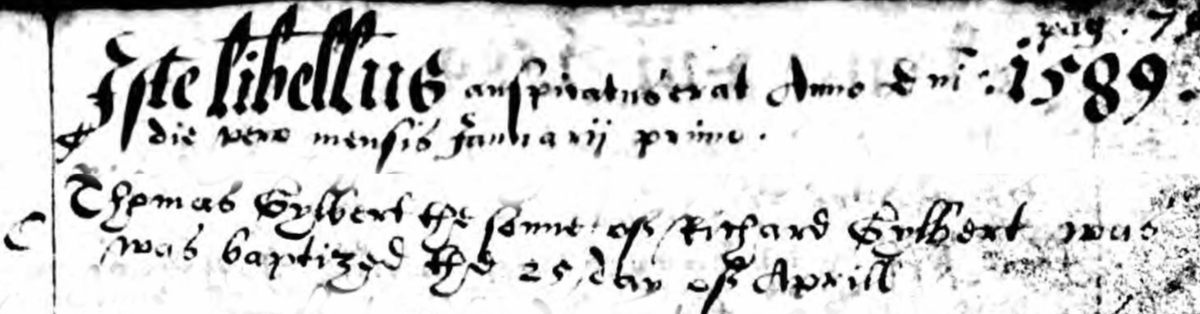 pag. 7
Iste libellus auspicatus erat Anno dni: 1589.
die vero mensis Januarij primo.
Thomas Gylbert the sonne of Richard Gylbert was
was baptized the 25 day of Aprill